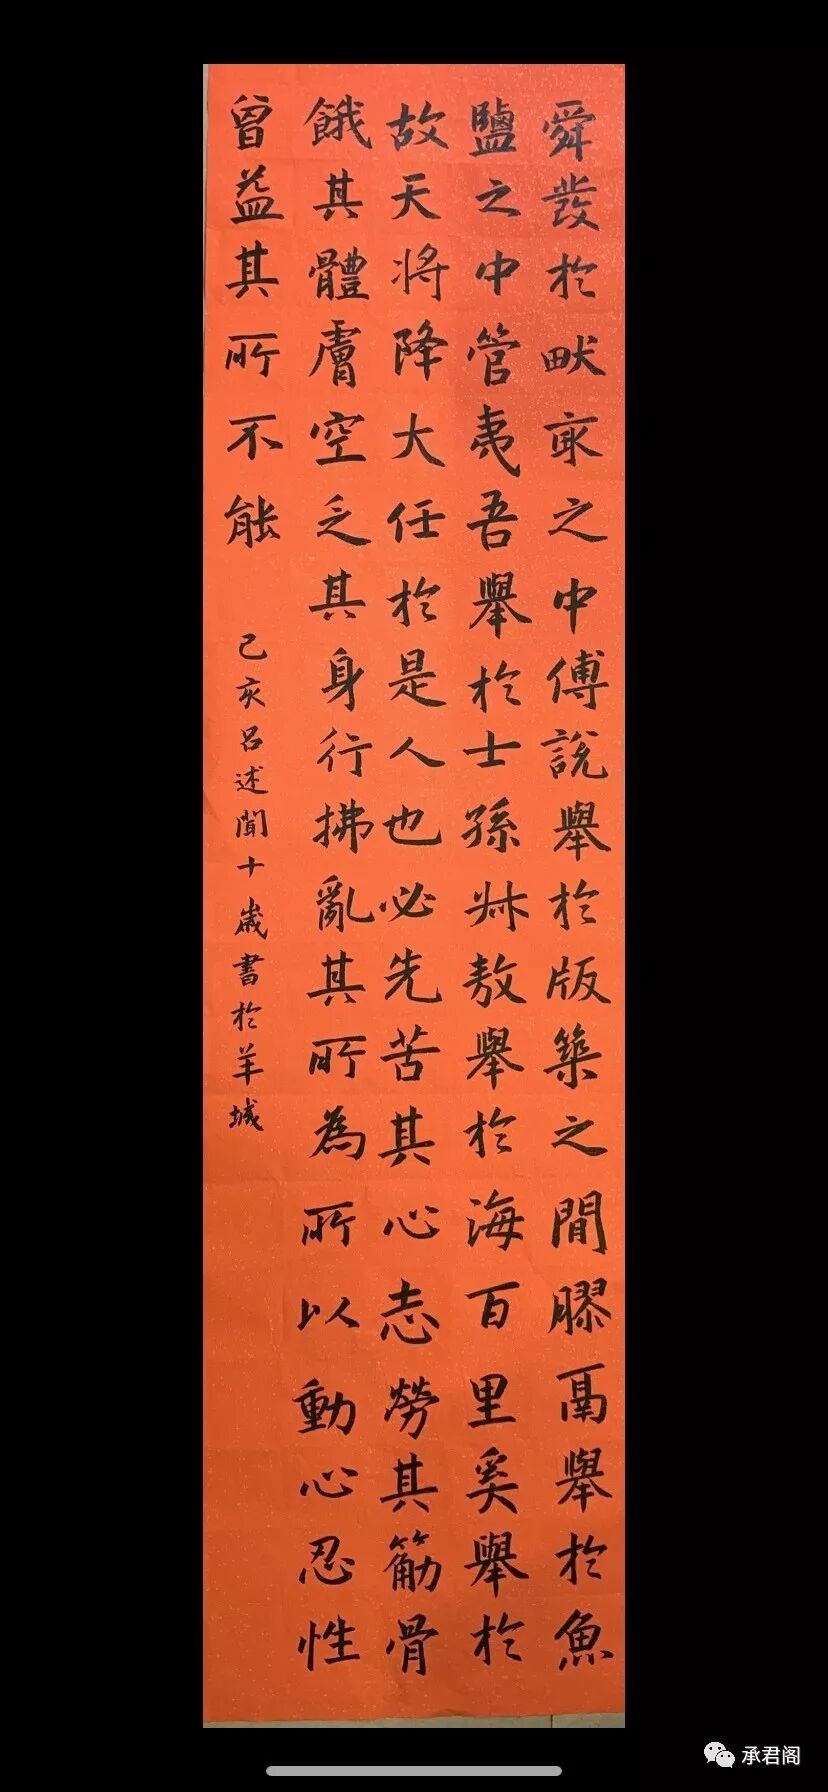 舜發於畎畝之中傅說舉於版築之間膠鬲舉於魚
鹽之中管夷吾舉於士孫叔敖舉於海百里奚舉於
故天將降大任於是人也必先苦其心志勞其筋骨
餓其體膚空乏其身行拂亂其所為所以動心忍性
曾益其所不能
己亥呂述聞十歲書於羊城
承君阁